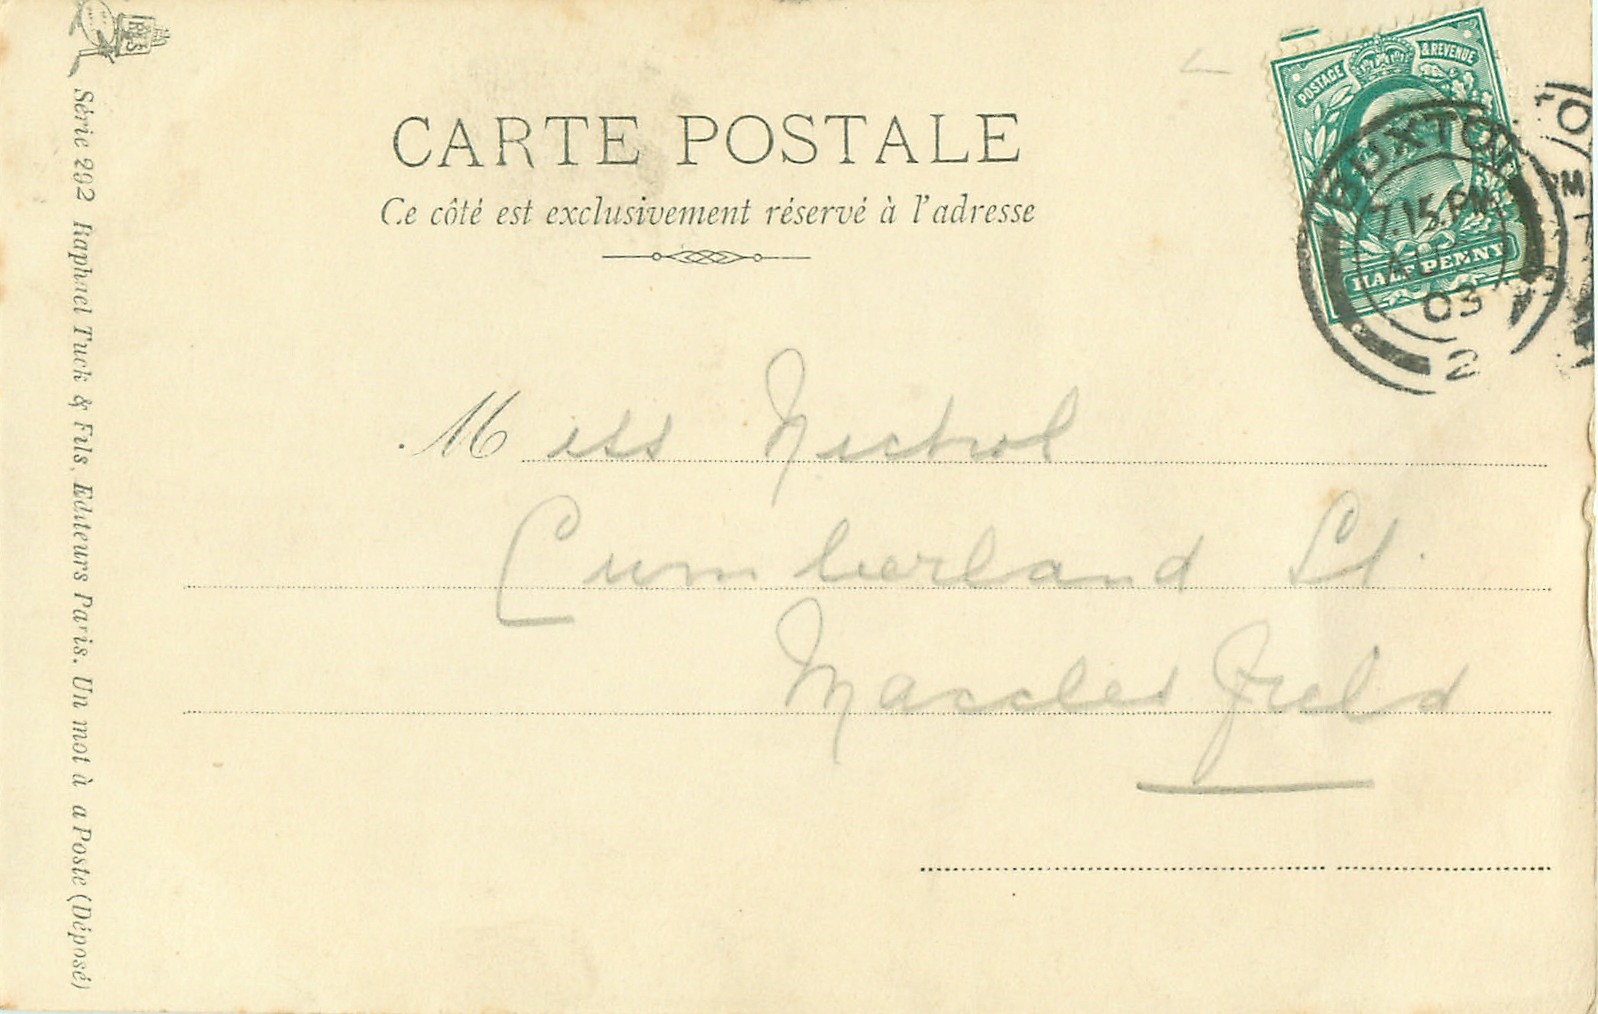 CARTE POSTALE
Ce côté est exclusivement réservé à l'adresse
POSTAGE & REVENUE
HALF PENNY
BUXTON
7.15 PM
AU
03
2
Miss Nichol
Cumberland St.
Macclesfield
Série 292 Raphael Tuck & Fils, Editeurs Paris. Un mot à a Poste (Déposé)